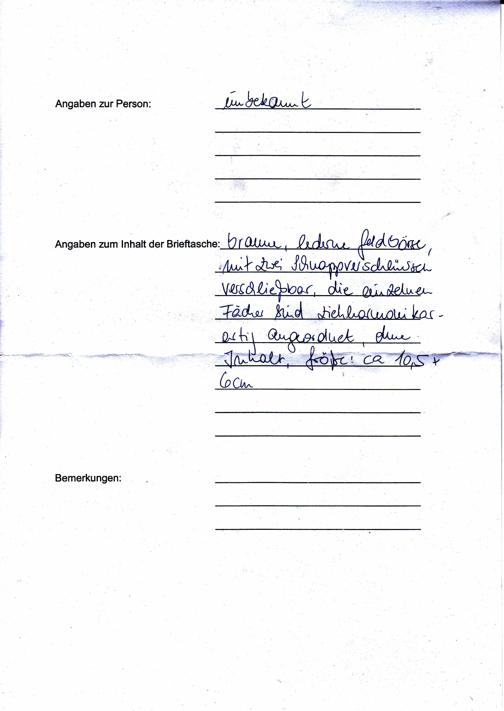 Angaben zur Person: unbekannt
Angaben zum Inhalt der Brieftasche: braune, lederne Geldbörse,
mit zwei Schnappverschlüssen
verschließbar, die einzelnen
Fächer sind ziehharmonikar-
artig angeordnet, ohne
Inhalt, Größe: ca 10,5 x
6cm
Bemerkungen: